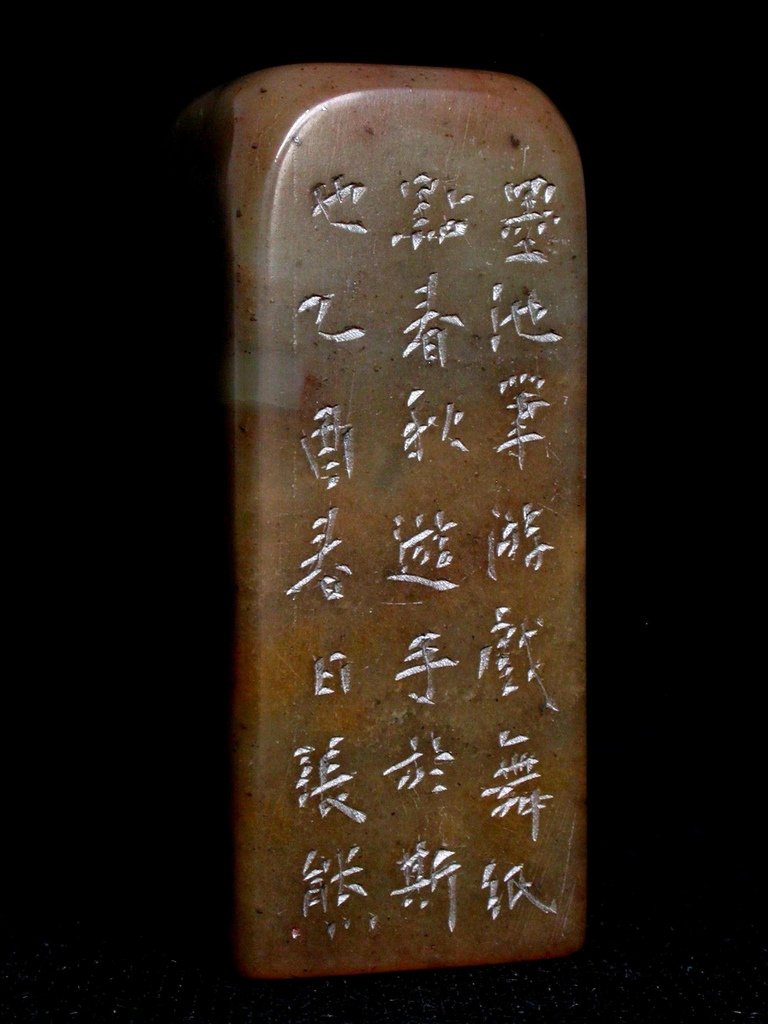 墨池筆游戲舞紙
點春秋遊手於斯
也乙酉春日張熊